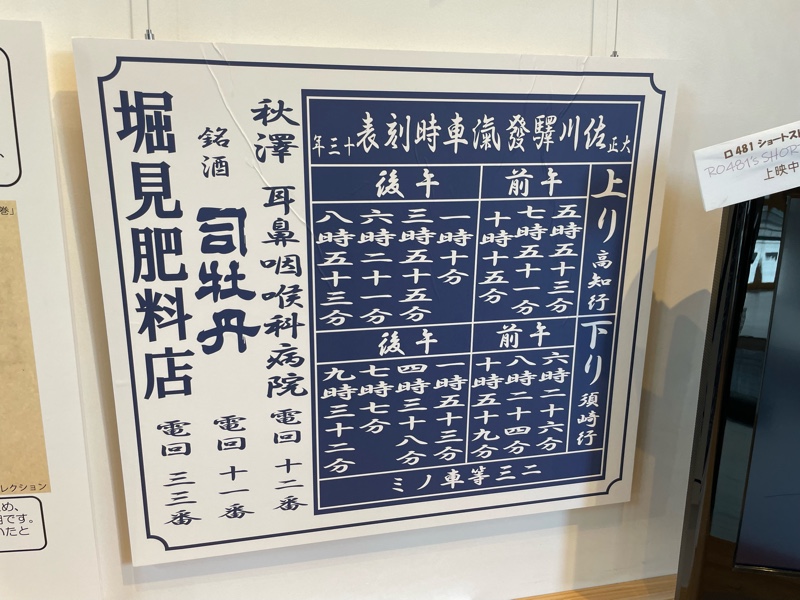 大正佐川驛發滊車時刻表十三年
上り 高知行
午前
五時五十三分
七時五十一分
十時十五分
午後
一時十分
三時五十五分
六時二十一分
八時五十三分
下り 須崎行
午前
六時二十六分
八時二十四分
十時五十九分
午後
一時五十三分
四時三十八分
七時七分
九時三十二分
二三等車ノミ
秋澤 耳鼻咽喉科病院 電回 十二番
銘酒 司牡丹 電回 十一番
堀見肥料店 電回 三三番
ロ481 ショートス
RO481's SHOR
上映中
レクション
め、
です。
いたと